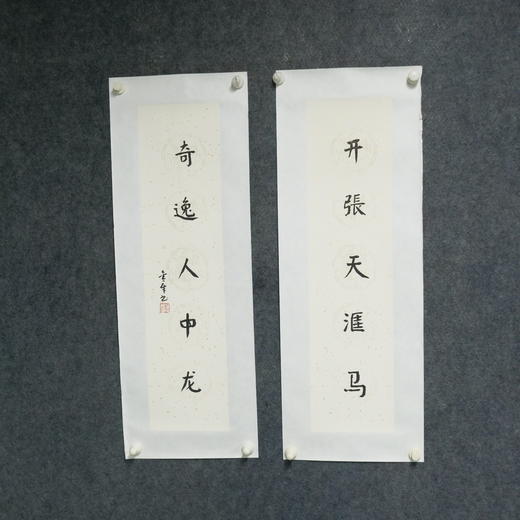 开張天涯马
奇逸人中龙